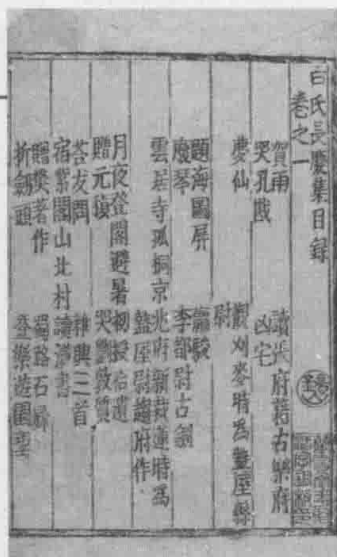 白氏長慶集目録
卷之一
賀雨
讀張府藉古樂府
哭孔戡
凶宅
夢仙
觀刈麥時爲盩厔縣
尉
題海圖屏
羸駿
廢琴
李都尉古劍
雲居寺孤桐
京兆府新栽蓮時爲
盩厔尉趨府作
月夜登閣避暑
初授拾遺
贈元稹
哭劉敦質
荅友問
雜興三首
宿紫閣山北村
讀漢書
贈樊著作
蜀路石婦
折劍頭
登樂遊園望